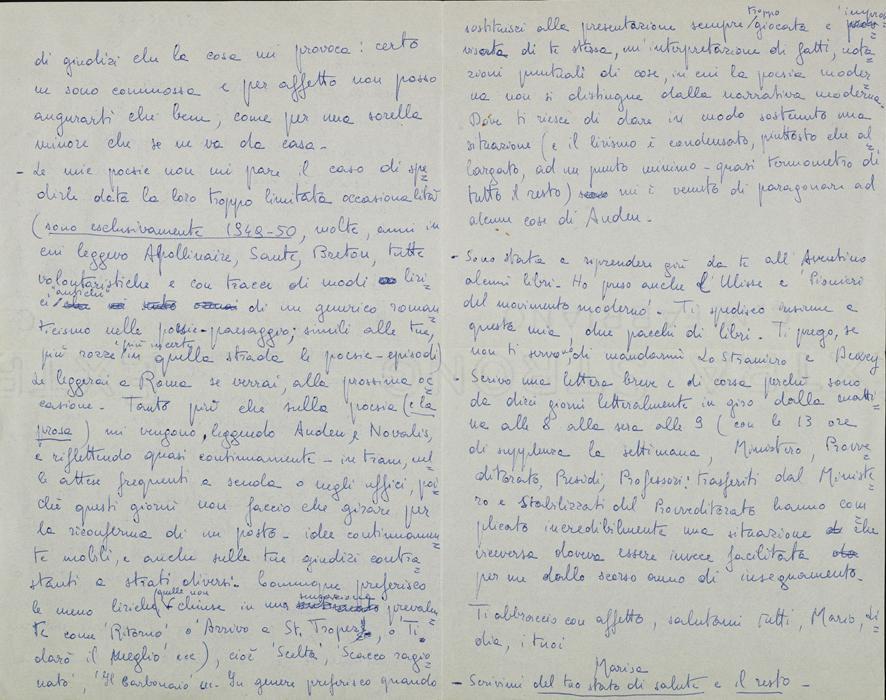 di giudizi che la cosa mi provoca: certo
me sono commossa e per affetto non posso
augurarti che bene, come per una sorella
minore che se ne va da casa -
- Le mie poesie non mi pare il caso di spe=
dirle data la loro troppo limitata occasionalità
(sono esclusivamente 1949-50, molte, anni in
cui leggevo Apollinaire, Sante, Breton, tutte
volontaristiche e con tracce di modi liri=
ci antichi di un generico roman=
ticismo nelle poesie-paesaggio; simili alle tue,
più rozze più incerte in quella strada le poesie-episodi)
Le leggerai a Roma se verrai, alla prossima oc=
casione. Tanto più che sulla poesia (e la
prosa) mi vengono, leggendo Auden e Novalis,
e riflettendo quasi continuamente - in tram, nel=
le attese frequenti a scuola o negli uffici, poi=
ché questi giorni non faccio che girare per
la riconferma di un posto - idee continuamen=
te mobili, e anche sulle tue giudizi contra=
stanti a strati diversi. Comunque preferisco
le meno liriche (quelle non chiuse in una suggestione prevalen=
te come 'Ritorno' o 'Arrivo a St. Tropez', o 'Ti
darò il meglio' ecc), cioè 'Scelta', 'Scacco ragio=
nato', 'Il Carbonaio' - In genere preferisco quando
sostituisci alla presentazione sempre troppo giocata e improv=
visata di te stessa, un'interpretazione di fatti, nota=
zioni puntuali di cose, in cui la poesia moder=
na non si distingue dalla narrativa moderna.
Dove ti riesce di dare in modo sostenuto una
situazione (e il lirismo è condensato, piuttosto che al=
largato, ad un punto minimo - quasi termometro di
tutto il resto) mi è venuto di paragonarti ad
alcune cose di Auden -
- Sono stata a riprendere giù da te all'Aventino
alcuni libri. Ho preso anche l'Ulisse e 'Pionieri
del movimento moderno'. Ti spedisco insieme a
questa mia due pacchi di libri. Ti prego, se
non ti servono, di mandarmi Lo Straniero e Dewey
- Scrivo una lettera breve e di corsa perché sono
da dieci giorni letteralmente in giro dalla matti=
na alle 8 alla sera alle 9 (con le 13 ore
di supplenza la settimana, Ministero, Provve=
ditorato, Presidi, Professori: trasferiti dal Ministe=
ro e stabilizzati del Provveditorato hanno com=
plicato incredibilmente una situazione che
viceversa doveva essere invece facilitata
per me dallo scorso anno di insegnamento -
Ti abbraccio con affetto, salutami tutti, Mario, Li=
dia, i tuoi
Marisa
- Scrivimi del tuo stato di salute e il resto -